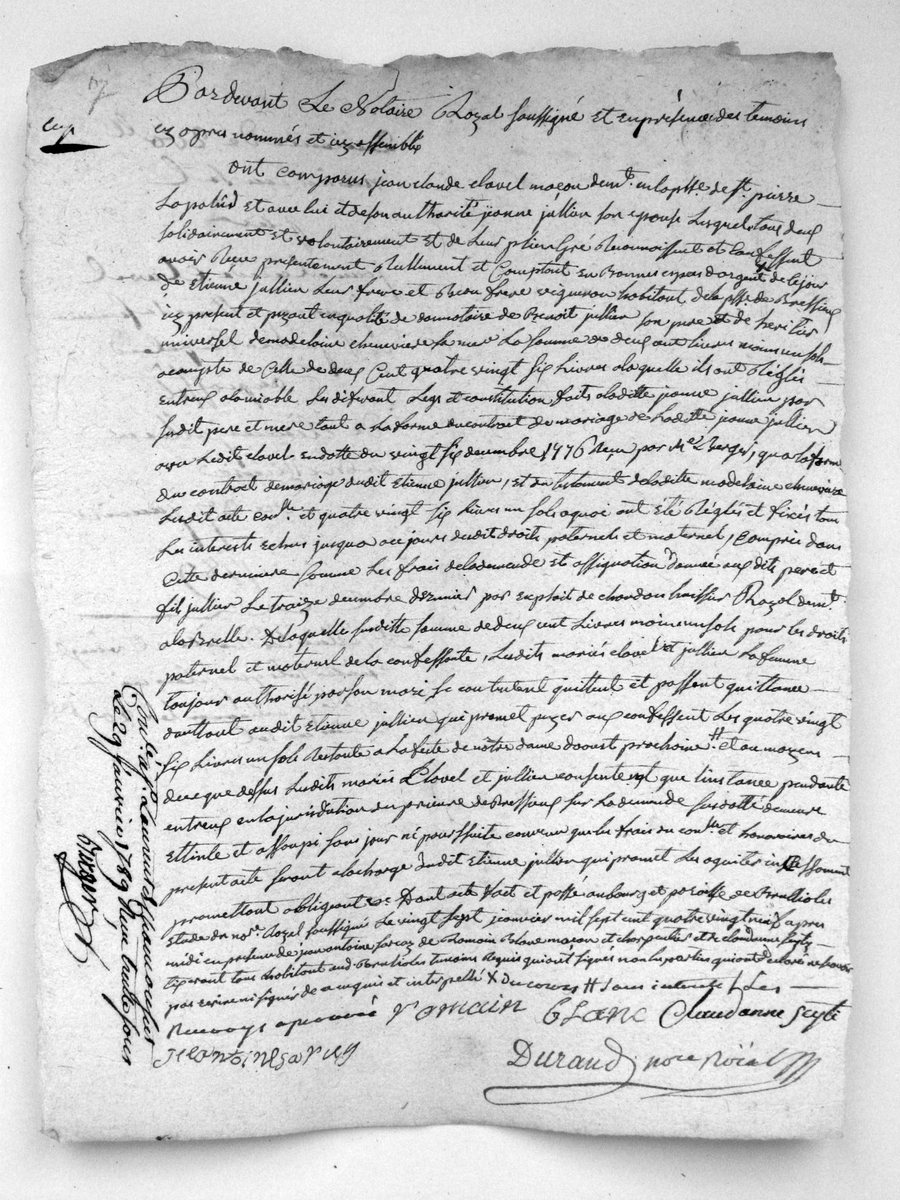 Pardevant Le Notaire Royal soussigné et en présence des temoins
cy apres nommés et cy assemblés
ont comparus jean claude clavel maçon demt. en la psse. de st. pierre
La palud et avec lui et de son authorité jeanne jullien son epouse Lesquels tous deux
solidairement et volontairement et de Leur plein Gré Reconnaissent et Confessent
avoir Reçu presentement Reellement et Comptant en Bonnes especes d'argent de ce jour
de Etienne jullien Leur frere et Beau frere vigneron habitant de la psse. de Bressieux
icy present et payant en qualité de donnataire de Benoit jullien son pere et de heritier
universel de madelaine cheneviere sa mere La somme de deux cent livres moins un sols
acompte de Celle de deux Cent quatre vingt six Livres a laquelle ils ont Réglés
entreux a lamiable Les diferant Legs et constitution faits a Ladite jeanne jullien par
susdit pere et mere tout a La forme du contrat de mariage de Laditte jeanne jullien
avec Ledit clavel en datte du vingt six decembre 1776 Reçu par Me. qua la forme
du contrat de mariage dudit Etienne jullien, et du testament de laditte madelaine cheneviere
Lesdit acte conlle. et quatre vingt six Livres un sols a quoi ont été Réglés et fixés tous
Les interests echus jusqua ce jour desdit droits paternels et maternel, Compris dans
Cette derniere somme Les frais de la demande et assignation donnée aux dits pere et
fils jullien Le traize decembre dernier par exploit de chardon huissier Royal demt.
a la Brelle. De laquelle susditte somme de deux cent Livres moins un sols pour les droits
paternel et maternel de la confessante, Lesdits mariés clavel et jullien La femme
toujour authorisé par son mari se contentent quittent et passent quittance
dautant audit Etienne jullien qui promet payer aux confessent Les quatre vingt
six Livres un sols Restante a La feste de nôtre dame daoust prochain # et au moyens
de ce que dessus Lesdits mariés Clavel et jullien consentent que linstance pendante
entreux en la jurisdiction du prieuré de Bressieux sur La demande susdatté demeure
etteinte et assoupi sans jour ni poursuitte convenu que les frais du conlle. et honoraires du
present acte seront a la charge dudit Etienne jullien qui promet Les aquiter incessament
promettant obligeant &c. Dont acte fait et passé au bourg et paroisse de
etude du nore. Royal soussigné Le vingt sept janvier mil sept cent quatre vingt neuf apres
midi en presence de jean antoine de Romain Blanc maçon et charpentier et de claud anne
tous habitant audit temoins Requis qui ont signés non les parties qui ont déclaré ne savoir
pas ecrire ni signé de ce enquis et interpellé X du cours # sans interest Les
Renvoys aprouvé romain bLanc Claud anne
Jeantoine
Durand nore Roïal
Conlé. a
Le 29 janvier 1789 Reçu trente sous